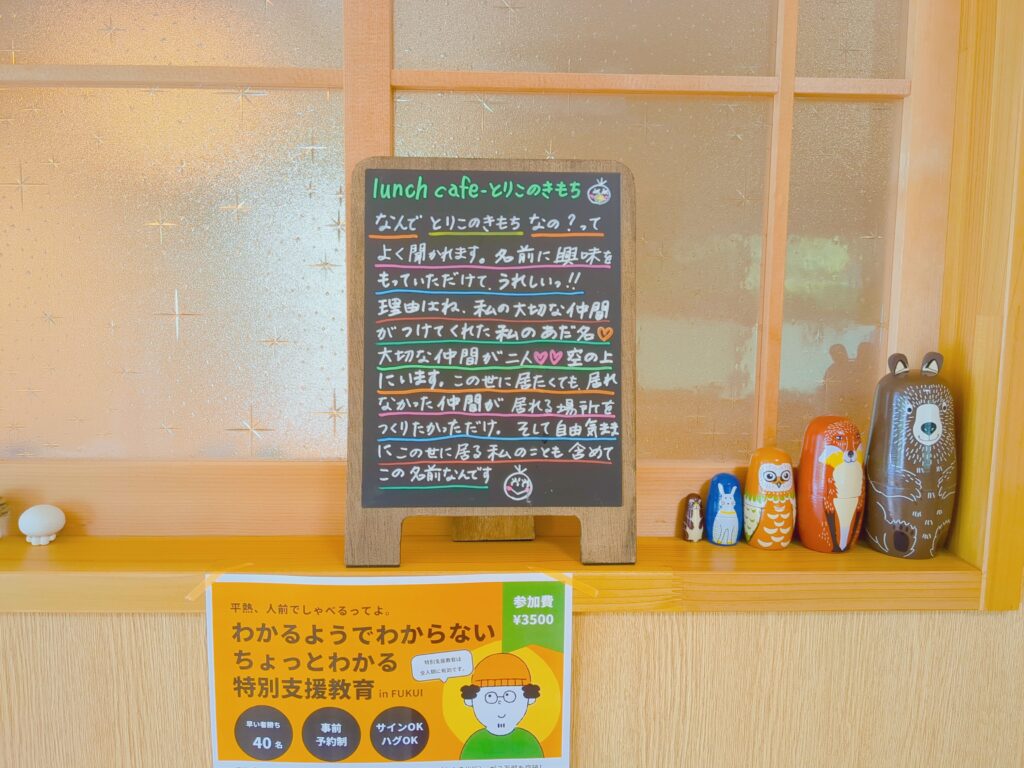 lunch cafe-とりこのきもち
なんで とりこのきもち なの?って
よく聞かれます。名前に興味を
もっていただけて、うれしいっ!!
理由はね、私の大切な仲間
がつけてくれた私のあだ名
大切な仲間が二人 空の上
にいます。この世に居たくても、居れ
なかった仲間が居れる場所を
つくりたかっただけ。そして自由気まま
にこの世に居る私のことも含めて
この名前なんです
平熱、人前でしゃべるってよ。
参加費
¥3500
わかるようでわからない
ちょっとわかる
特別支援教育 in FUKUI
特別支援教育は
全人類に有効です。
早い者勝ち
40名
事前
予約制
サインOK
ハグOK